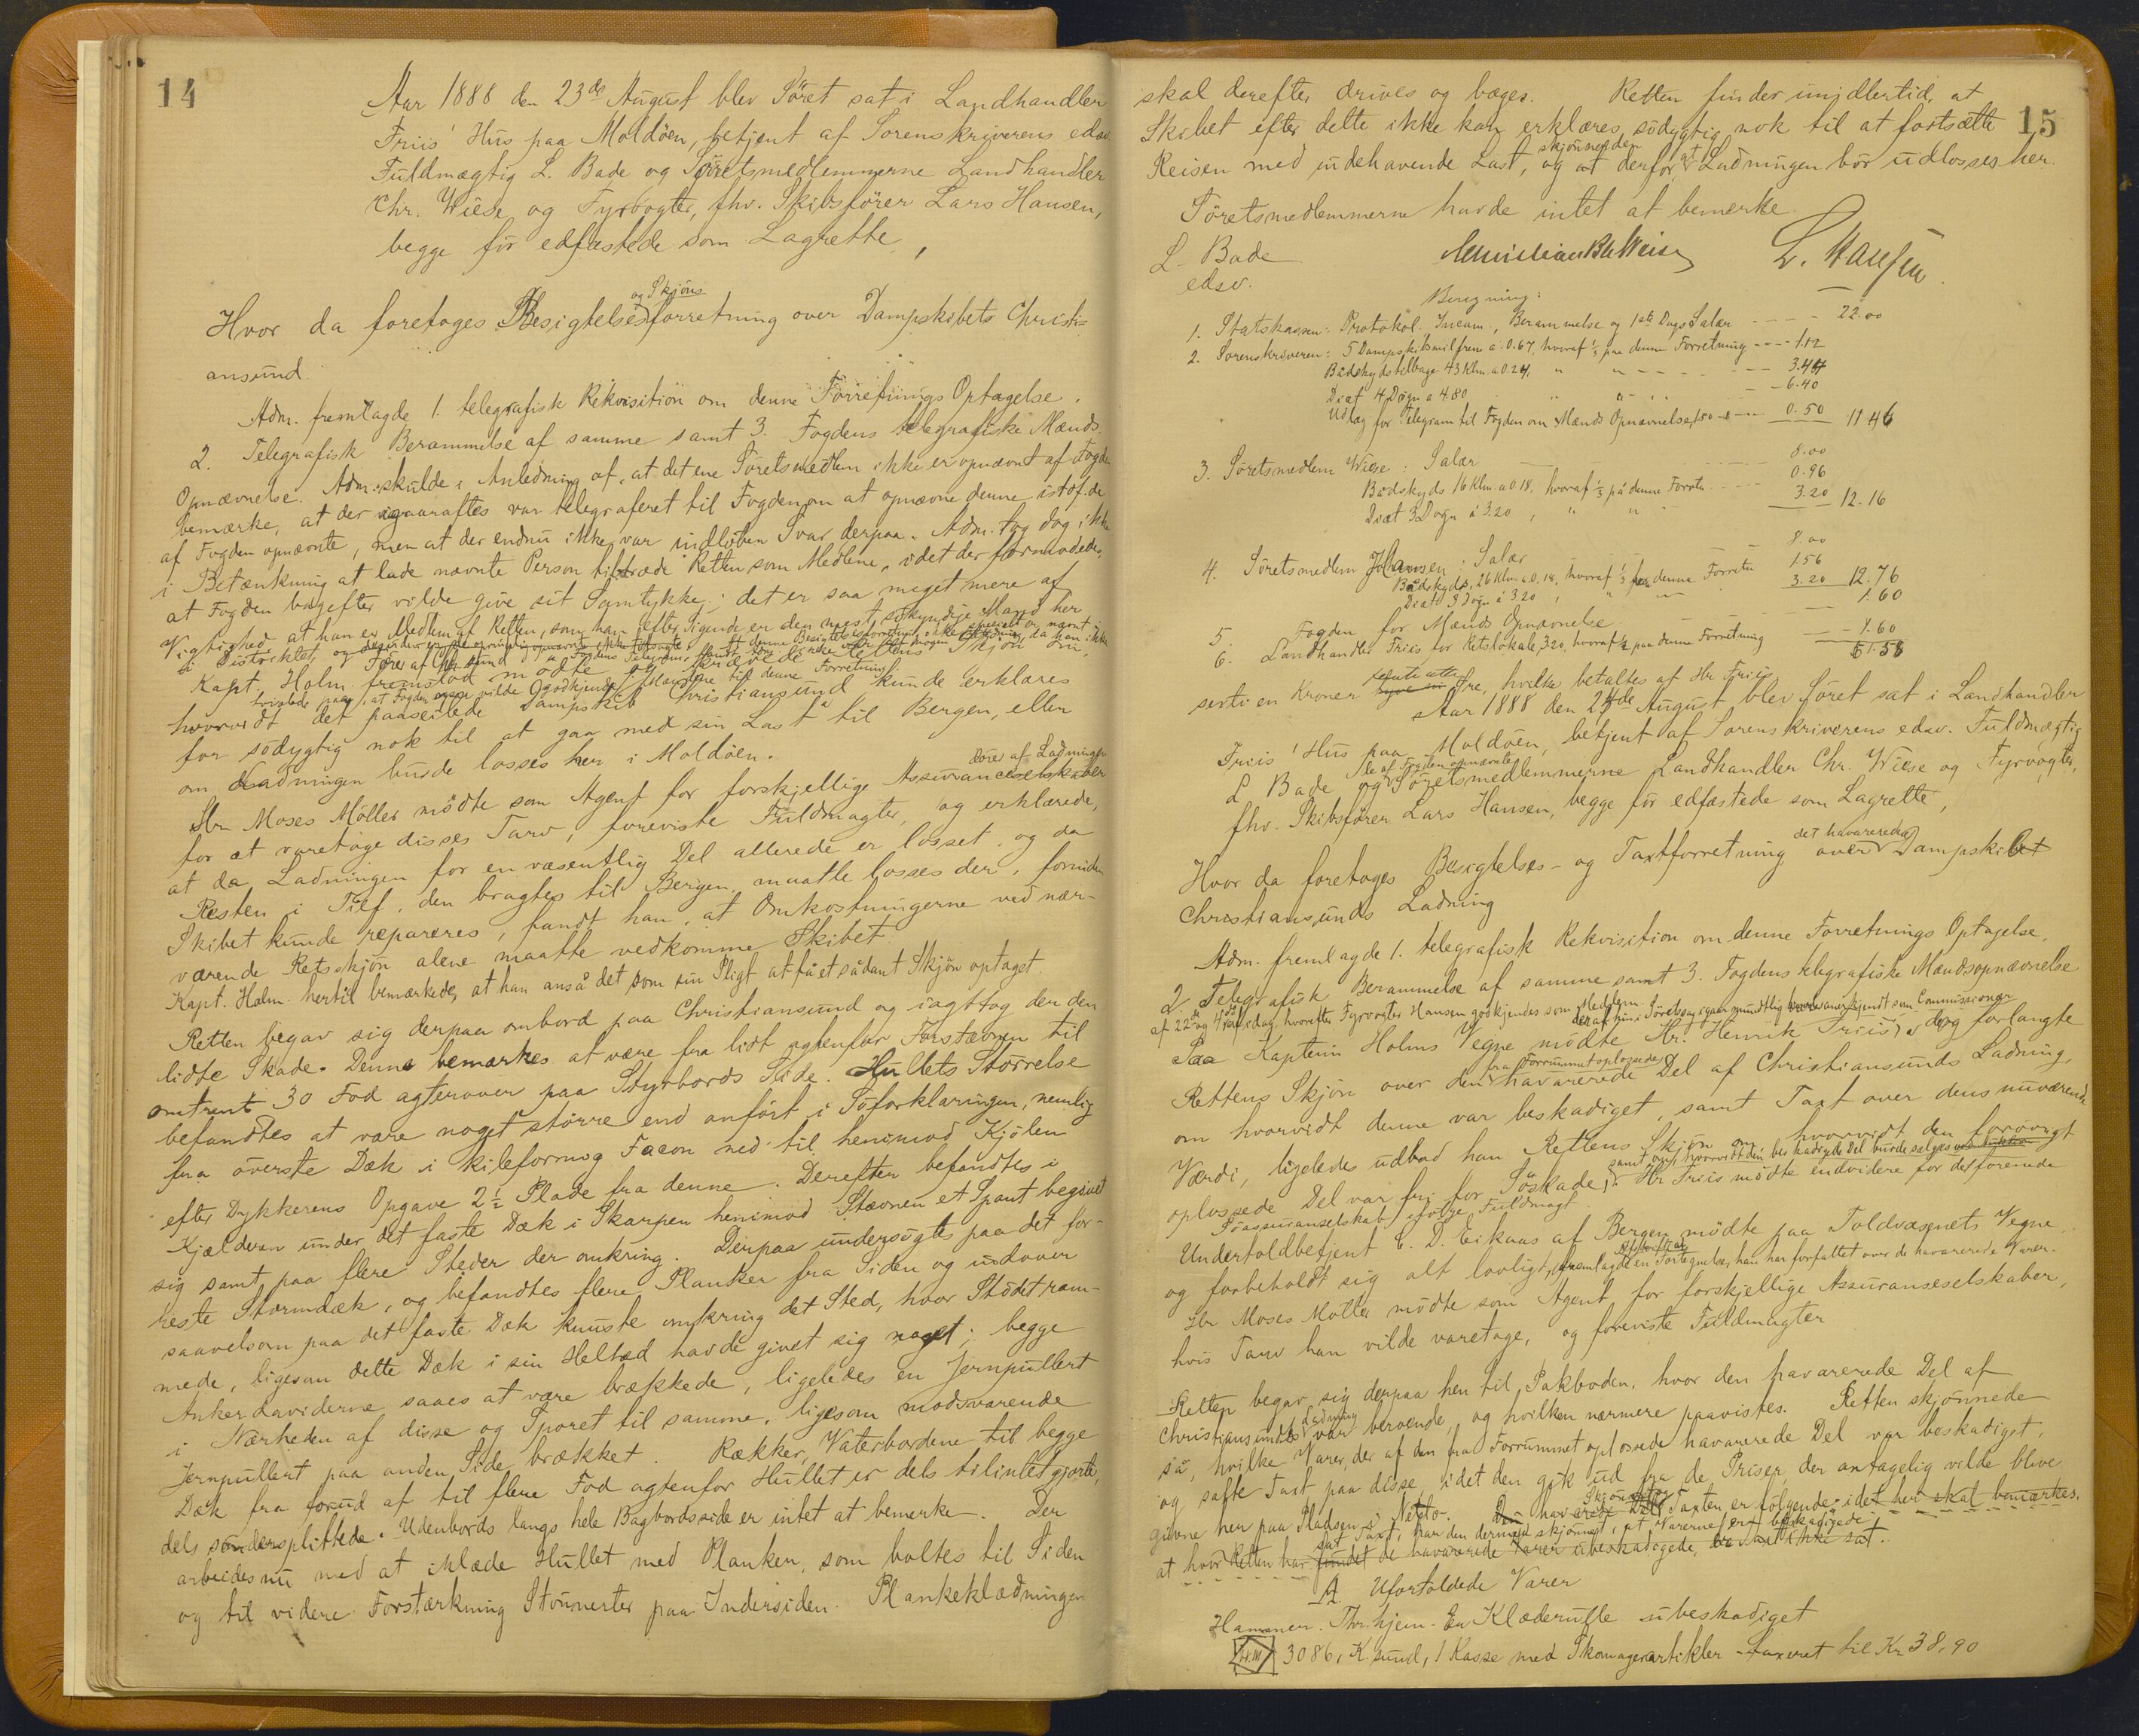 14
Aar 1888 den 23de August blev Söret sat i Landhandler
Friis' Hus paa Moldöen, betjent af Sorenskriverens edsv.
Fuldmægtig L. Bade og Söretsmedlemmerne Landhandler
Chr. Wiese og Fyrvogter, fhv. Skibsförer Lars Hansen,
begge för edfæstede som Lagrette,
og Skjöns
Hvor da foretoges Besigtelsesforretning over Dampskibets Christi-
ansund.
Adm. fremlagde 1. telegrafisk Rekvisition om denne Forretnings Optagelse.
2. Telegrafisk Berammelse af samme samt 3. Fogdens telegrafiske Mænds-
Opnævnelse. Adm. skulde i Anledning af, at det ene Söretsmedlem ikke er opnævnt af Fogden
bemærke, at der igaaraftes var telegraferet til Fogden om at opnævne denne istdf. de
af Fogden opnævnte, men at der endnu ikke var indlöben Svar derpaa. Adm. tog dog ikke
i Betænkning at lade nævnte Person tiltræde Retten som Medlem, idet der formodedes,
at Fogden bagefter vilde give sit Samtykke; det er saa meget mere af
Vigtighed at han er Medlem af Retten, som han efter Sigende er den mest sökyndige Mand her
i Distriktet, og
Kapt. Holm Förer af Chr.sund mödte
hvorvidt det paaseilede Dampskib Christiansund kunde erklæres
for södygtig nok til at gaa med sin Last til Bergen, eller
om Ladningen burde losses her i Moldöen.
Hr. Moses Möller mödte som Agent for forskjellige Assuranceselskaber
for at varetage disses Tarv, foreviste Fuldmagter, og erklærede,
at da Ladningen for en væsentlig Del allerede er losset, og da
Resten i Tilf. den bragtes til Bergen, maatte losses der, forinden
Skibet kunde repareres, fandt han, at Omkostningerne ved nær-
værende Retsskjön alene maatte vedkomme Skibet.
Kapt. Holm hertil bemærkede, at han anså det som sin Pligt at få et sådant Skjön optaget.
Retten begav sig derpaa ombord paa Christiansund og iagttog der den
lidte Skade. Denne bemærkes at være fra lidt agtenfor Forstævnen til
omtrent 30 Fod agterover paa Styrbords Side. Hullets Störrelse
befandtes at være noget större end anfört i Söforklaringen, nemlig
fra överste Dæk i kileformig Facon ned til henimod Kjölen
efter Dykkerens Opgave 2½ Plade fra denne. Derefter befandtes i
Kjælderen under det faste Dæk i Skarpen henimod Stævnen et Spant begivet
sig samt paa flere Steder der omkring. Derpaa undersögtes paa det for-
reste Stormdæk, og befandtes flere Planker fra Siden og udover
saavelsom paa det faste Dæk knuste omkring det Sted, hvor Stödet ram-
mede, ligesom dette Dæk i sin Helhed havde givet sig noget; begge
Ankerdaviderne saaes at være brækkede, ligeledes en Jernpullert
i Nærheden af disse og Sporet til samme, ligesom modsvarende
Jernpullert paa anden Side brækket. Rækker, Vaterbordene til begge
Dæk fra forud af til flere Fod agtenfor Hullet er dels tilintetgjorte,
dels söndersplittede. Udenbords langs hele Bagbordsside er intet at bemerke. Der
arbeides nu med at iklæde Hullet med Planker, som boltes til Siden
og til videre Forstærkning Stönnerter paa Indersiden. Plankeklædningen
15
skal derefter drives og bæges. Retten finder imidlertid, at
Skibet efter dette ikke kan erklæres södygtig nok til at fortsætte
skjönnes den
Reisen med indehavende Last, og at derfor at Ladningen bör udlosses her.
Söretsmedlemmerne havde intet at bemerke.
L. Bade
edsv.
L. Hansen
Beregning:
1. Statskassen: Protokol. Incam, Berammelse og 1ste Dags Salær 22.00
2. Sorenskriveren: 5 Dampskibsmil frem a 0.67, hvoraf ⅓ paa denne Forretning 1.12
Bådskyds tilbage 43 Klm. a 0.24, " " 3.44
Diæt 4 Dögn a 4.80 " " 6.40
Udlæg for Telegram til Fogden om Mænds Opnævnelse 0.50 11 46
3. Söretsmedlem Wiese: Salær 8.00
Bådskyds 16 Klm a 0.18, hvoraf ⅓ på denne Forretn 0.96
Diæt 3 Dögn a 3.20, " " 3.20 12.16
4. Söretsmedlem Hansen: Salær 8.00
Bådskyds, 26 Klm. a 0.18, hvoraf ⅓ paa denne Forretn 1.56
Diæt 3 Dögn a 3.20, " " 3.20 12.76
5. Fogden for Mænds Opnævnelse 1.60
6. Landhandler Friis for Retslokale, 3.20, hvoraf ½ paa denne Forretning 1.60
61.58
sexti en Kroner femti otte Öre, hvilke betaltes af Hr Friis.
Aar 1888 den 24de August blev Söret sat i Landhandler
Friis' Hus paa Moldöen, betjent af Sorenskriverens edsv. Fuldmægtig
de af Fogden opnævnte
L Bade og Söretsmedlemmerne Landhandler Chr. Wiese og Fyrvogter,
fhv. Skibsförer Lars Hansen, begge för edfæstede som Lagrette,
det havarerede
Hvor da foretoges Besigtelses- og Taxtforretning over Dampskibet
Christiansunds Ladning
Adm. fremlagde 1. telegrafisk Rekvisition om denne Forretnings Optagelse,
2 Telegrafisk Berammelse af samme samt 3. Fogdens telegrafiske Mændsopnævnelse
af 22de og 4 af idag, hvorefter Fyrvogter Hansen godkjendes som Medlem.
Paa Kaptein Holms Vegne mödte Hr. Henrik Friis, der forlangte
fra Forrummet oplossede
Rettens Skjön over den havarerede Del af Christiansunds Ladning,
om hvorvidt denne var beskadiget, samt Taxt over dens nuværende
Værdi, ligeledes udbad han Rettens Skjön om, hvorvidt den forövrigt
samt om hvorvidt den beskadigede Del burde selges
oplossede Del var fri for Söskade. Hr Friis mödte endvidere for det forenede
Söassuranselskab ifölge Fuldmagt.
Undertoldbetjent E. D. Eikaas af Bergen mödte paa Toldvæsenets Vegne
og forbeholdt sig alt lovligt, fremlagde en Fortegnelse, han har forfattet over de havarerede Varer.
Hr Moses Möller mödte som Agent for forskjellige Assuranseselskaber,
hvis Tarv han vilde varetage, og foreviste Fuldmagter
Retten begav sig derpaa hen til Pakboden, hvor den havarerede Del af
Ladning
Christiansunds var beroende, og hvilken nærmere paavistes. Retten skjönnede
så, hvilke Varer, der af den fra Forrummet oplossede havarerede Del var beskadiget,
og satte Taxt paa disse, idet den gik ud fra de Priser, der antagelig vilde blive
givne her paa Pladsen i Netto. Taxten er fölgende, idet her skal bemærkes,
at hvor Retten har sat Taxt, har den dermed skjönnet, at Varerne ere beskadigede
A Ufortoldede Varer
Hammer. Thr.hjem. En Klæderulle ubeskadiget
3086, K.sund, 1 Kasse med Skomagerartikler taxeret til Kr 38,90